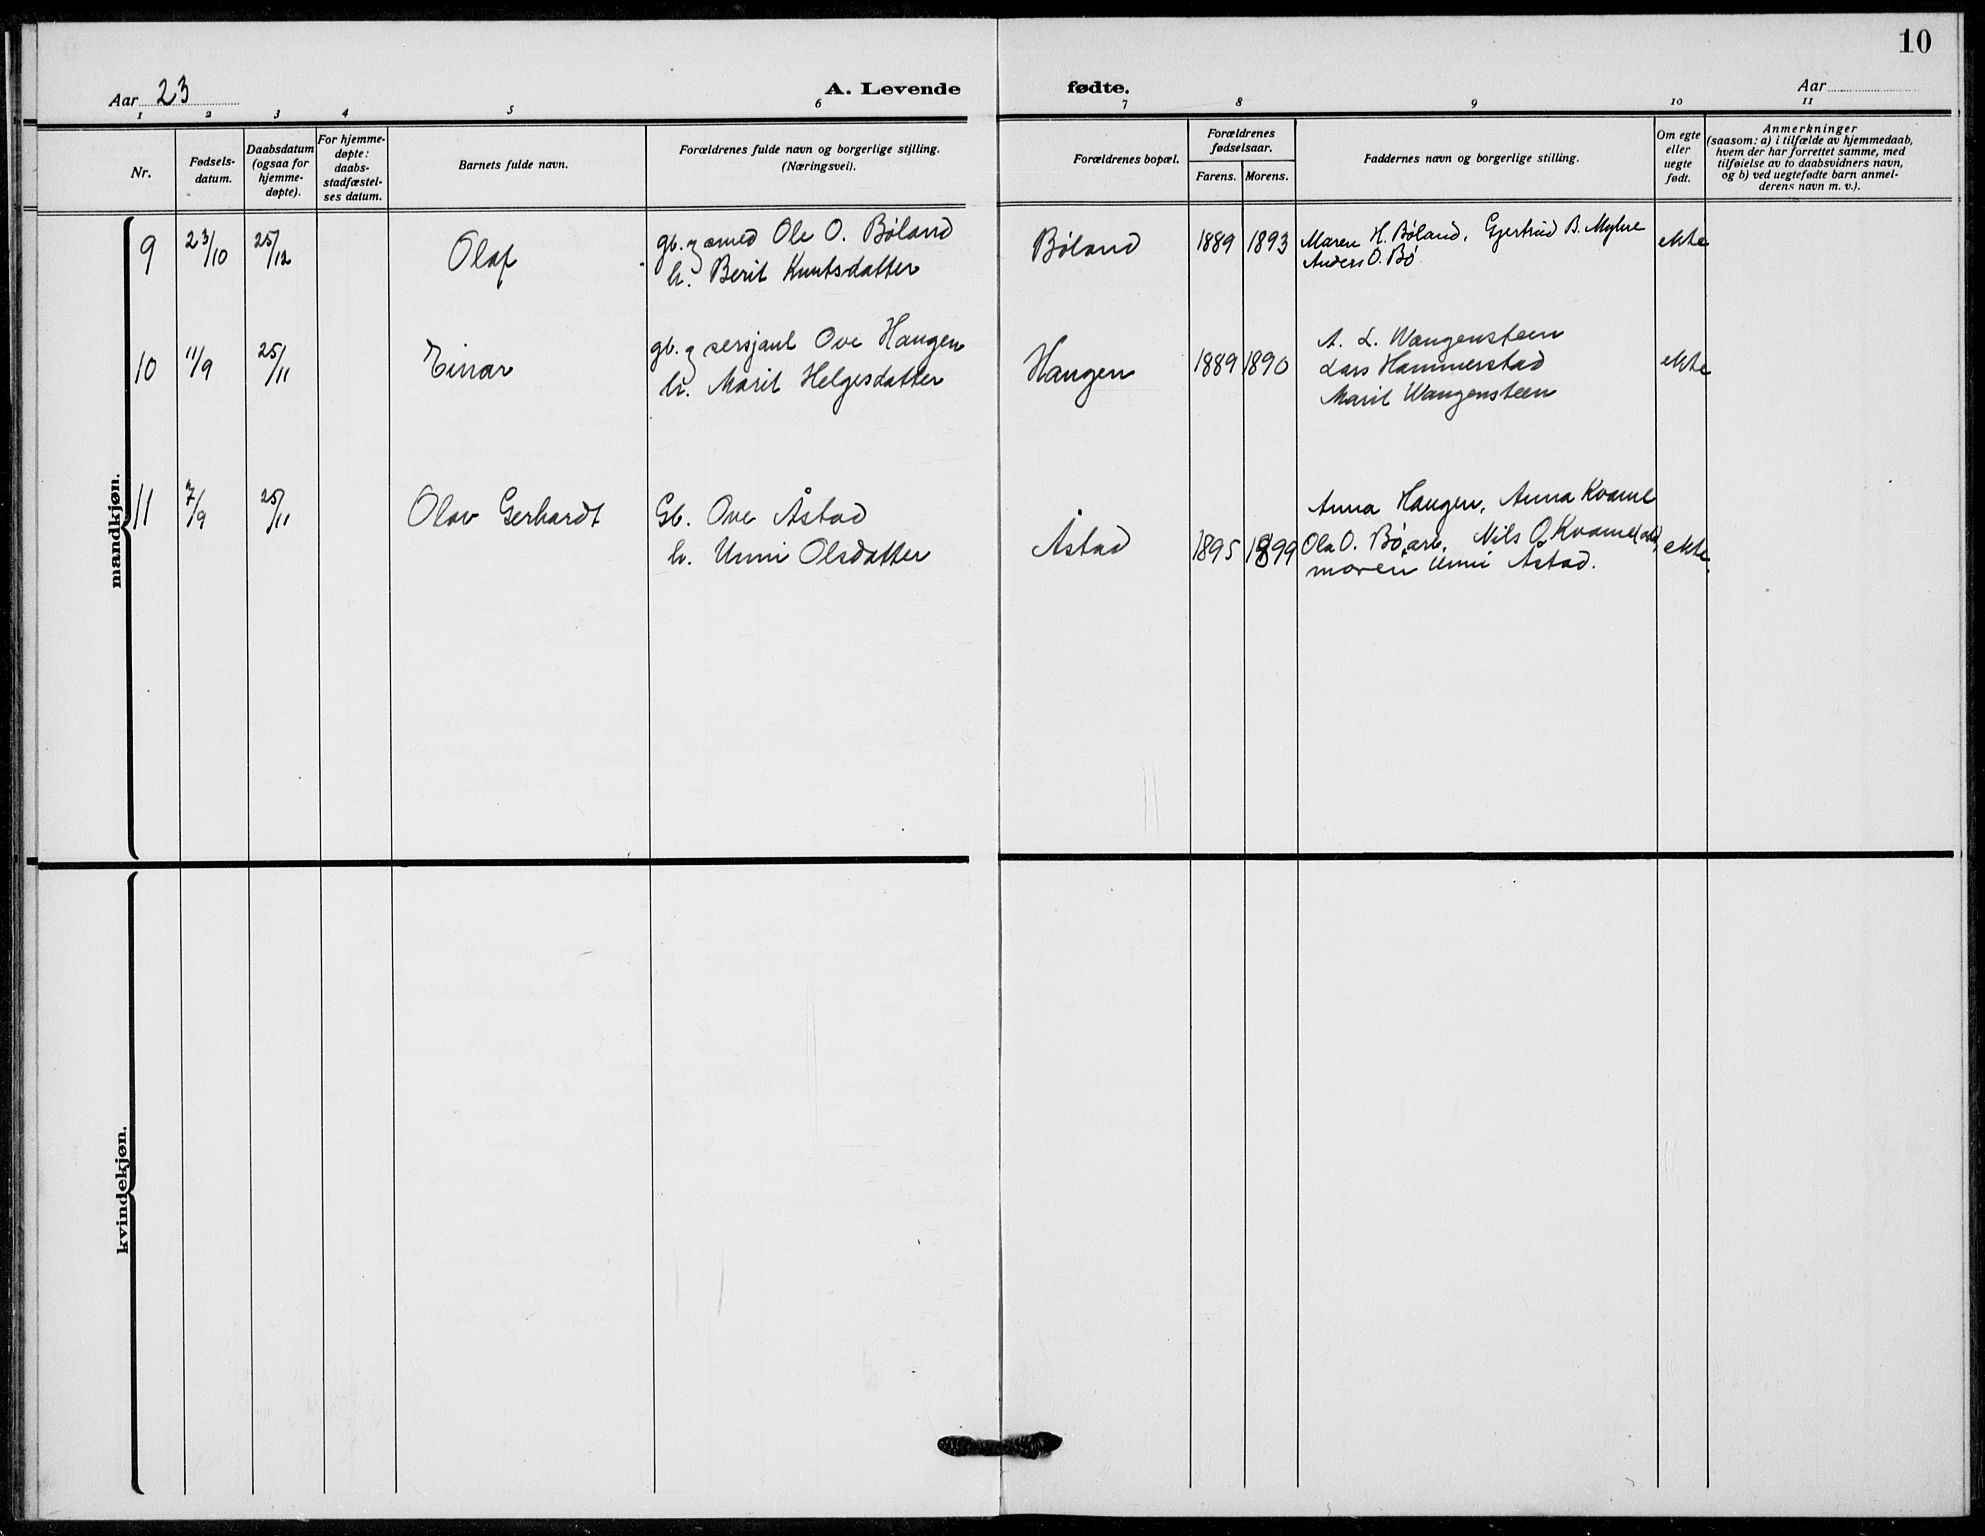 10
Aar 23
A. Levende fødte.
Aar
1 2 3 4 5 6 7 8 9 10 11
Nr.
Fødsels-
datum.
Daabsdatum
(ogsaa for
hjemme-
døpte).
For hjemme-
døpte:
daabs-
stadfæstel-
ses datum.
Barnets fulde navn.
Forældrenes fulde navn og borgerlige stilling.
(Næringsvei).
Forældrenes bopæl.
Forældrenes
fødselsaar.
Farens. Morens.
Faddernes navn og borgerlige stilling.
Om egte
eller
uegte
født.
Anmerkninger
(saasom: a) i tilfælde av hjemmedaab,
hvem der har forrettet samme, med
tilføielse av to daabsvidners navn,
og b) ved uegtefødte barn anmel-
derens navn m. v.).
mandkjøn.
9 23/10 25/12 Olaf
gb. og smed Ole O. Bøland
h. Berit Knutsdatter
Bøland 1889 1893
Maren H. Bøland, Gjertrud B. Myhre
Anders O. Bø
ekte
10 11/9 25/11 Einar
gb. og sersjant Ove Haugen
h. Marit Helgesdatter
Haugen 1889 1890
A. L. Wangensteen
Lars Hammerstad
Marit Wangensteen
ekte
11 7/9 25/11 Olav Gerhardt
Gb. Ove Åstad
h. Unni Olsdatter
Åstad 1895 1899
Anna Haugen, Anna Kvame
Ola O. Bø, Nils O. Kvame
moren Unni Åstad.
ekte.
kvindekjøn.